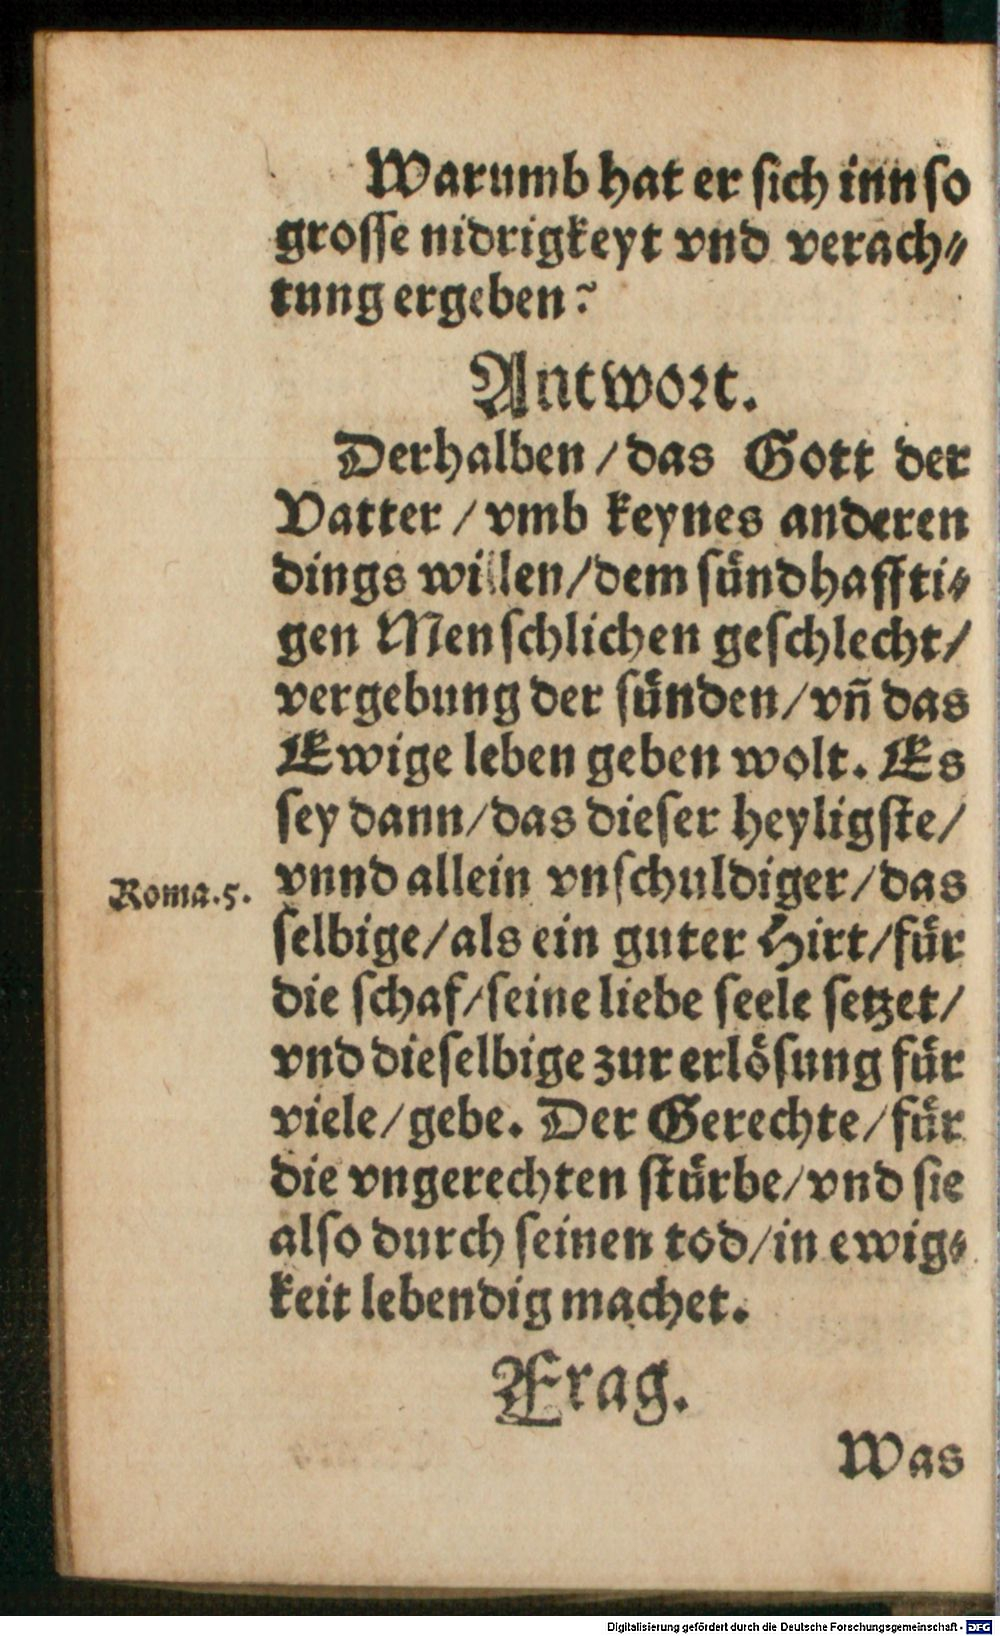 Warumb hat er sich inn so
grosse nidrigkeyt vnd verach⸗
tung ergeben?
Antwort.
Derhalben / das Gott der
Vatter / vmb keynes anderen
dings willen / dem sündhaffti⸗
gen Menschlichen geschlecht /
vergebung der sünden / vñ das
Ewige leben geben wolt. Es
sey dann / das dieser heyligste /
Roma. 5.
vnnd allein vnschuldiger / das
selbige / als ein guter Hirt / für
die schaf / seine liebe seele setzet /
vnd dieselbige zur erlösung für
viele / gebe. Der Gerechte / für
die vngerechten stürbe / vnd sie
also durch seinen tod / in ewig⸗
keit lebendig machet.
Frag.
Was
Digitalisierung gefördert durch die Deutsche Forschungsgemeinschaft - DFG